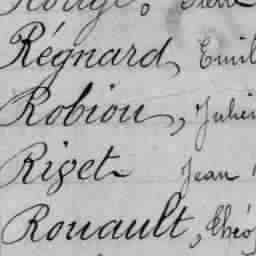 Régnard, Emil
Robiou, Julien
Rizet Jean
Rouault, Théo